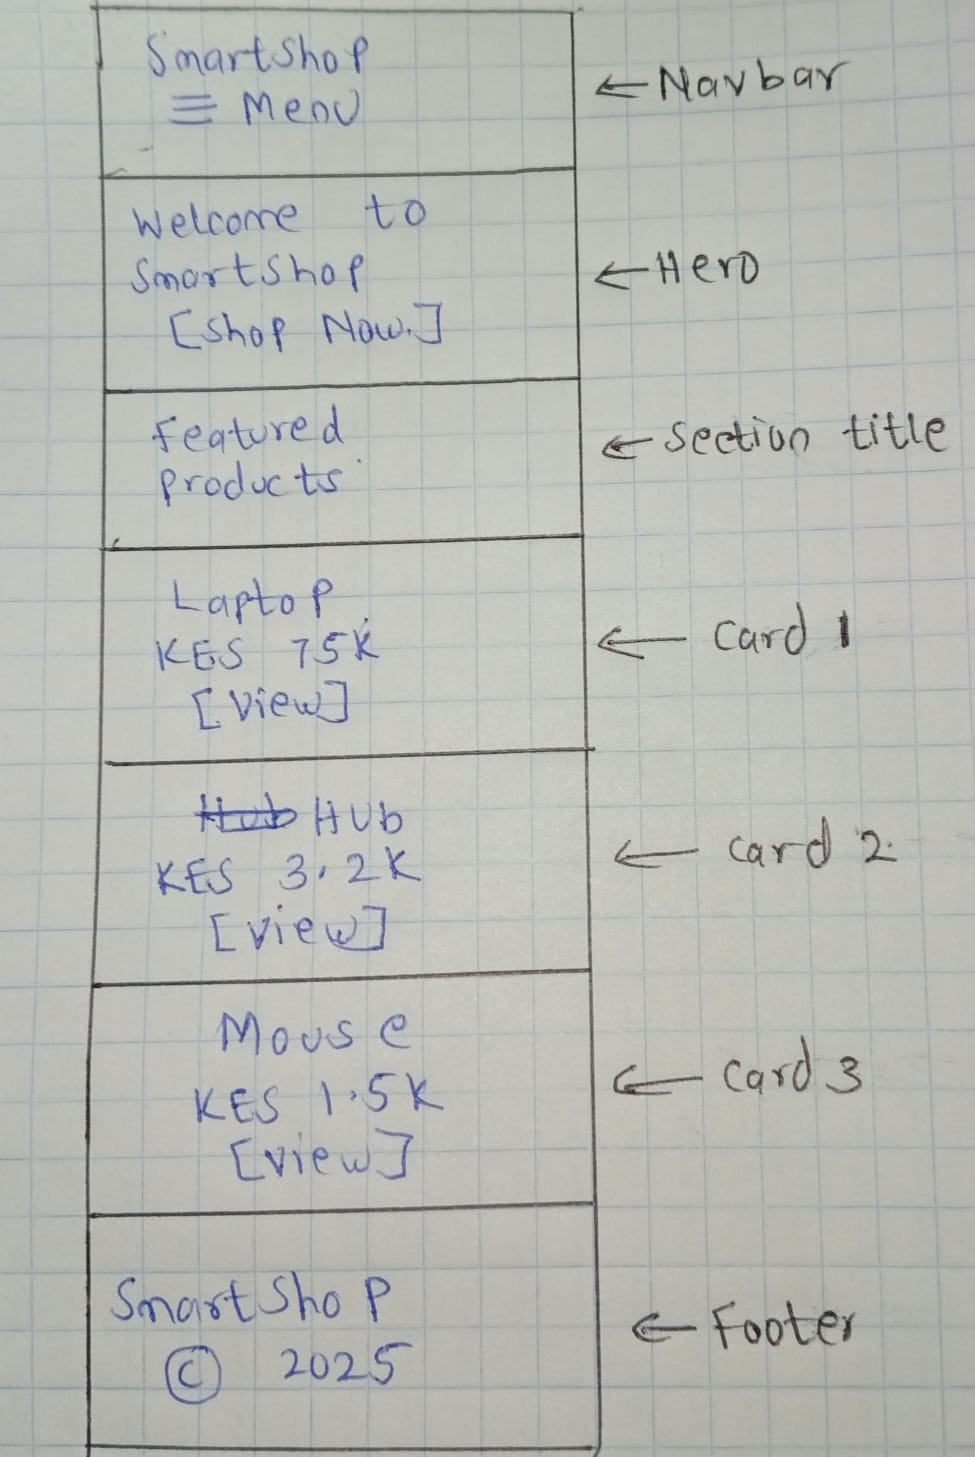 SmartShop
≡ Menu
← Navbar
Welcome to
SmartShop
[Shop Now.]
← Hero
Featured
products
← Section title
Laptop
KES 75K
[View]
← Card 1
Hub HUb
KES 3.2K
[view]
← Card 2
Mouse
KES 1.5K
[view]
← Card 3
SmartShop
© 2025
← Footer